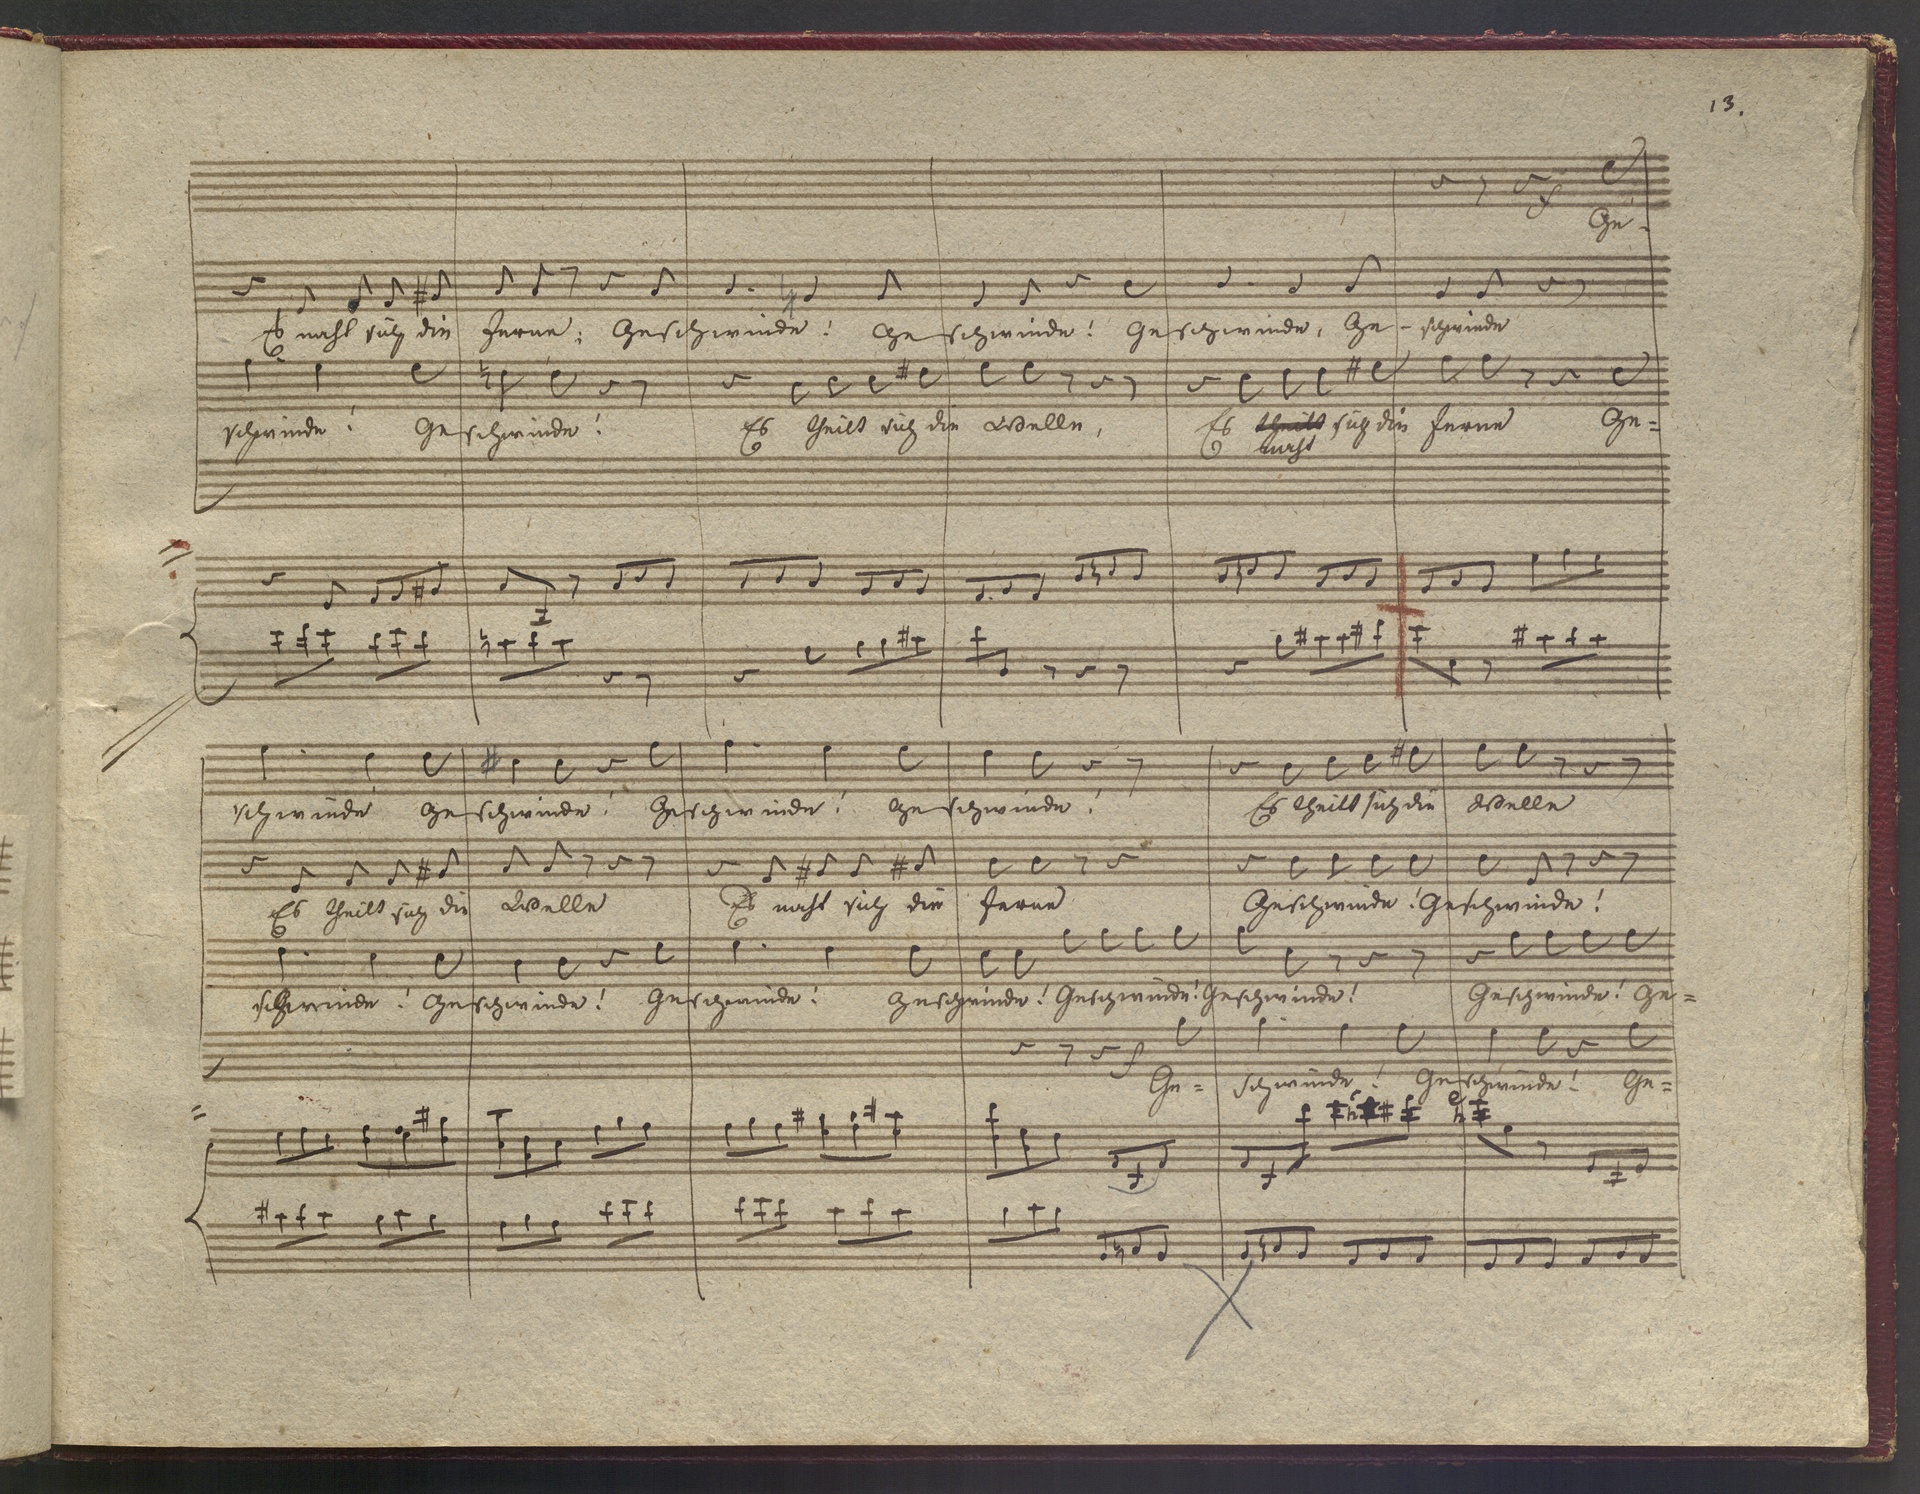 13.
Ge-
Es naht sich die Ferne; Geschwinde! Geschwinde! Geschwinde, Ge-schwinde
schwinde! Geschwinde! Es theilt sich die Welle, Es theilt sich die Ferne Ge=
naht
schwinde Geschwinde! Geschwinde! Geschwinde! Es theilt sich die Welle
Es theilt sich die Welle Es naht sich die Ferne Geschwinde! Geschwinde!
schwinde! Geschwinde! Geschwinde! Geschwinde! Geschwinde! Geschwinde! Geschwinde! Ge=
Ge= schwinde! Geschwinde! Ge=